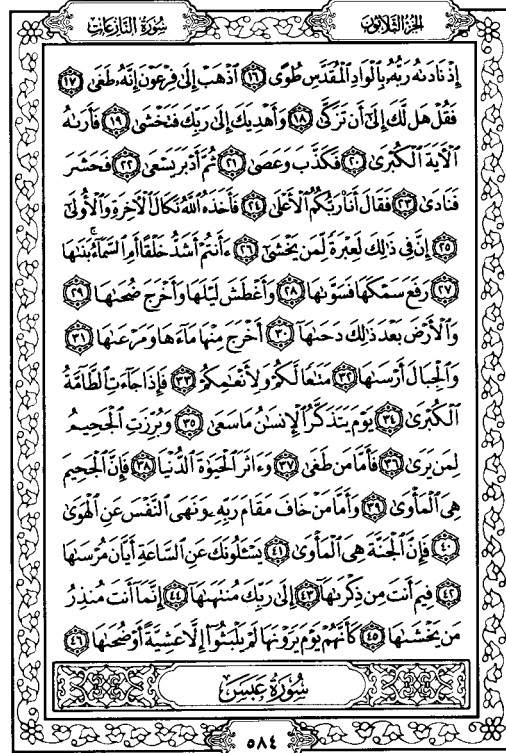 الجزء الثلاثون
سورة النازعات
إِذْ نَادَىٰهُ رَبُّهُۥ بِٱلْوَادِ ٱلْمُقَدَّسِ طُوًى ١٦ ٱذْهَبْ إِلَىٰ فِرْعَوْنَ إِنَّهُۥ طَغَىٰ ١٧
فَقُلْ هَل لَّكَ إِلَىٰٓ أَن تَزَكَّىٰ ١٨ وَأَهْدِيَكَ إِلَىٰ رَبِّكَ فَتَخْشَىٰ ١٩ فَأَرَىٰهُ
ٱلْـَٔايَةَ ٱلْكُبْرَىٰ ٢٠ فَكَذَّبَ وَعَصَىٰ ٢١ ثُمَّ أَدْبَرَ يَسْعَىٰ ٢٢ فَحَشَرَ
فَنَادَىٰ ٢٣ فَقَالَ أَنَا۠ رَبُّكُمُ ٱلْأَعْلَىٰ ٢٤ فَأَخَذَهُ ٱللَّهُ نَكَالَ ٱلْـَٔاخِرَةِ وَٱلْأُولَىٰٓ
٢٥ إِنَّ فِى ذَٰلِكَ لَعِبْرَةً لِّمَن يَخْشَىٰٓ ٢٦ ءَأَنتُمْ أَشَدُّ خَلْقًا أَمِ ٱلسَّمَآءُ ۚ بَنَىٰهَا
٢٧ رَفَعَ سَمْكَهَا فَسَوَّىٰهَا ٢٨ وَأَغْطَشَ لَيْلَهَا وَأَخْرَجَ ضُحَىٰهَا ٢٩
وَٱلْأَرْضَ بَعْدَ ذَٰلِكَ دَحَىٰهَآ ٣٠ أَخْرَجَ مِنْهَا مَآءَهَا وَمَرْعَىٰهَا ٣١
وَٱلْجِبَالَ أَرْسَىٰهَا ٣٢ مَتَـٰعًا لَّكُمْ وَلِأَنْعَـٰمِكُمْ ٣٣ فَإِذَا جَآءَتِ ٱلطَّآمَّةُ
ٱلْكُبْرَىٰ ٣٤ يَوْمَ يَتَذَكَّرُ ٱلْإِنسَـٰنُ مَا سَعَىٰ ٣٥ وَبُرِّزَتِ ٱلْجَحِيمُ
لِمَن يَرَىٰ ٣٦ فَأَمَّا مَن طَغَىٰ ٣٧ وَءَاثَرَ ٱلْحَيَوٰةَ ٱلدُّنْيَا ٣٨ فَإِنَّ ٱلْجَحِيمَ
هِىَ ٱلْمَأْوَىٰ ٣٩ وَأَمَّا مَنْ خَافَ مَقَامَ رَبِّهِۦ وَنَهَى ٱلنَّفْسَ عَنِ ٱلْهَوَىٰ
٤٠ فَإِنَّ ٱلْجَنَّةَ هِىَ ٱلْمَأْوَىٰ ٤١ يَسْـَٔلُونَكَ عَنِ ٱلسَّاعَةِ أَيَّانَ مُرْسَىٰهَا
٤٢ فِيمَ أَنتَ مِن ذِكْرَىٰهَآ ٤٣ إِلَىٰ رَبِّكَ مُنتَهَىٰهَآ ٤٤ إِنَّمَآ أَنتَ مُنذِرُ
مَن يَخْشَىٰهَا ٤٥ كَأَنَّهُمْ يَوْمَ يَرَوْنَهَا لَمْ يَلْبَثُوٓا۟ إِلَّا عَشِيَّةً أَوْ ضُحَىٰهَا ٤٦
سورة عبس
٥٨٤